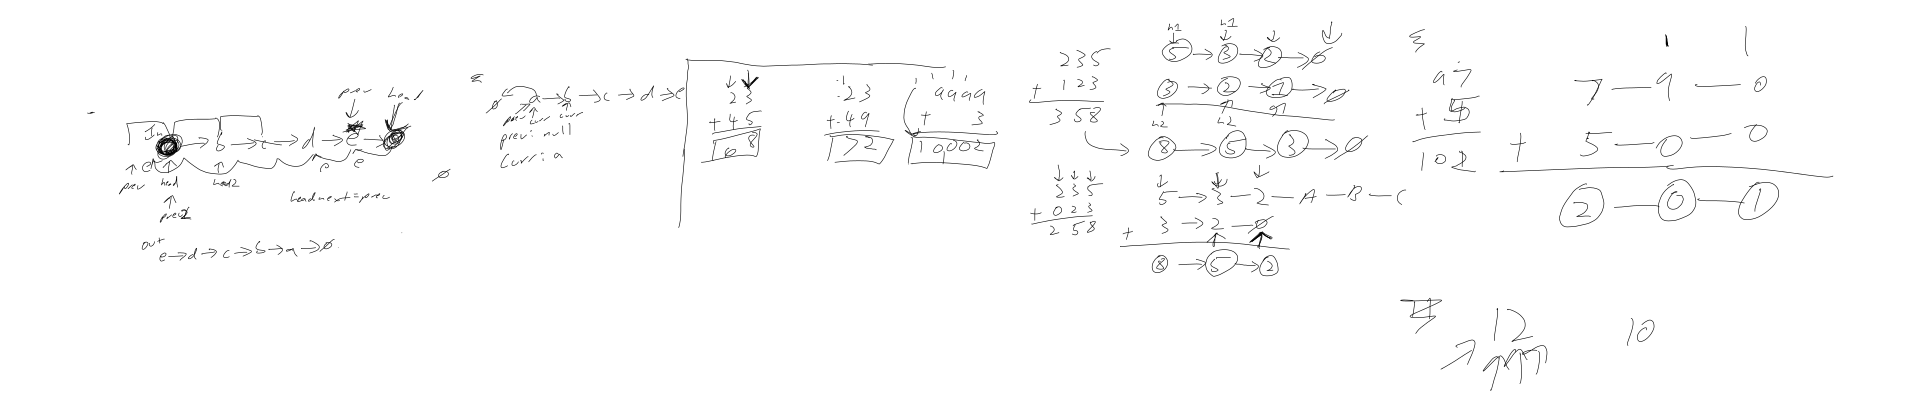 prev head
In → b → c → d → e →
e e e
prev head head2
prev2
head next = prev
∅
out
e → d → c → b → a → ∅
∅ a → b → c → d → e
prev curr curr
prev: null
curr: a
23
+ 45
68
1
23
+ 49
72
1 1 1 1
9999
+ 3
10,002
235
+ 123
358
h1 h1
5 → 3 → 2 → ∅
3 → 2 → 1 → ∅
h2 h2
8 → 5 → 3 → ∅
235
+ 023
258
5 → 3 — 2 — A — B — C
+ 3 → 2 — ∅
8 → 5 → 2
97
+ 5
102
1 1
7 — 9 — 0
+ 5 — 0 — 0
2 — 0 — 1
12 10